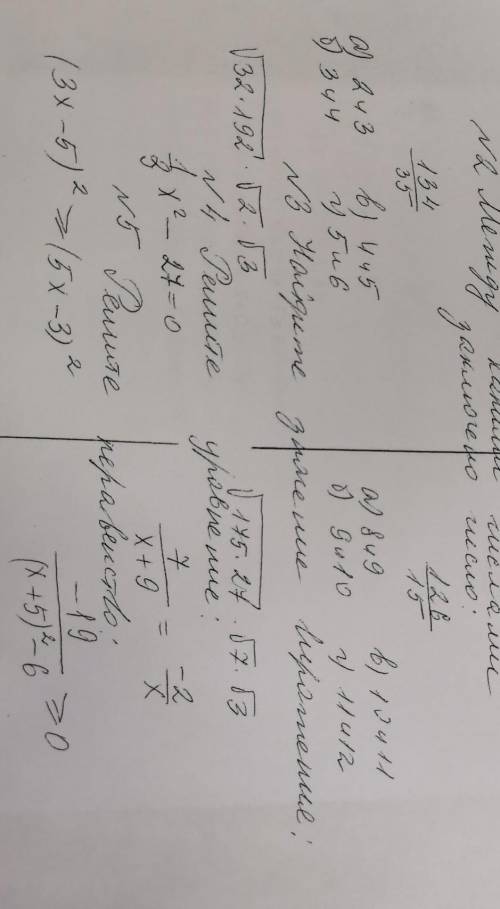 №2 Между какими числами
заключено число:
134/35
126/15
а) 2 и 3 в) 4 и 5
б) 3 и 4 г) 5 и 6
а) 8 и 9 в) 10 и 11
б) 9 и 10 г) 11 и 12
№3 Найдите значение выражения:
√32·192 · √2 · √3
√175·27 · √7 · √3
№4 Решите уравнение:
1/3 x² − 27 = 0
7/(x+9) = −2/x
№5 Решите неравенство:
(3x−5)² ≥ (5x−3)²
−19/((x+5)²−6) ≥ 0